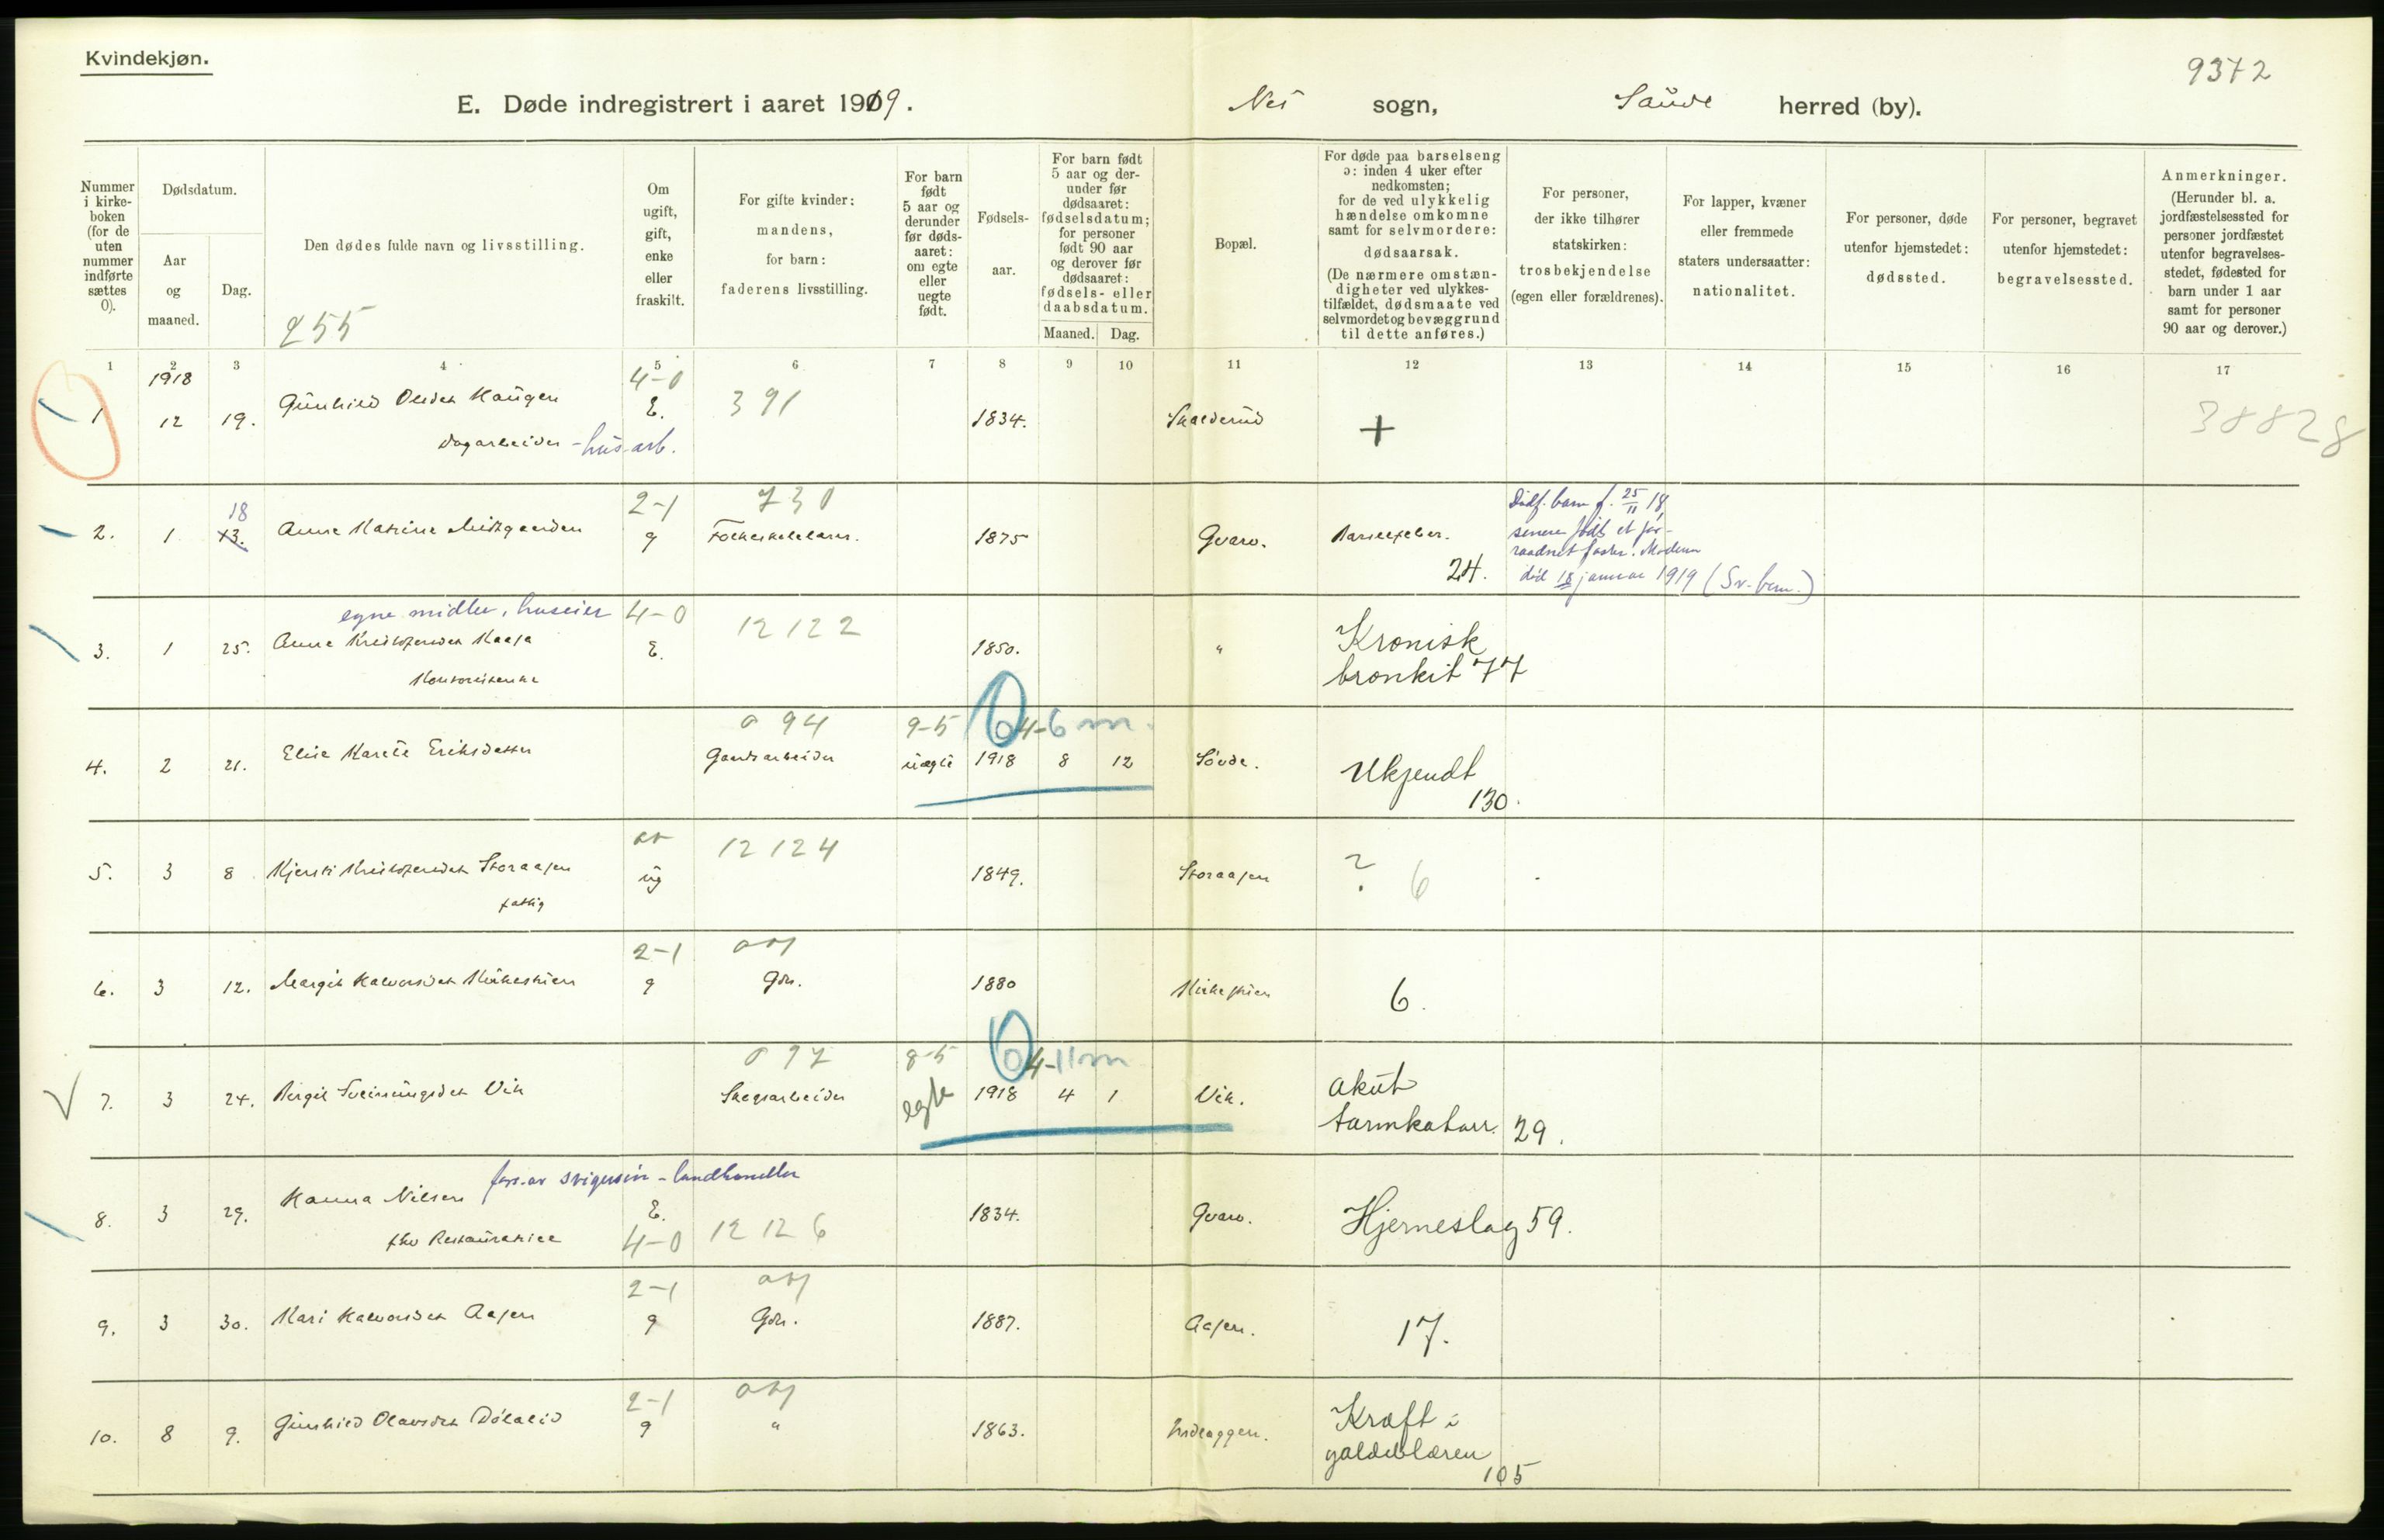 Kvindekjøn.
9372
E. Døde indregistrert i aaret 1919.
Nes sogn, Saude herred (by).
Nummer i kirke-boken (for de uten nummer indførte sættes 0).
Dødsdatum.
Aar og maaned.
Dag.
Den dødes fulde navn og livsstilling.
255
Om ugift, gift, enke eller fraskilt.
For gifte kvinder: mandens, for barn: faderens livsstilling.
For barn født 5 aar og derunder før døds-aaret: om egte eller uegte født.
Fødsels-aar.
For barn født 5 aar og der-under før dødsaaret: fødselsdatum; for personer født 90 aar og derover før dødsaaret: fødsels- eller daabsdatum.
Maaned. Dag.
Bopæl.
For døde paa barselseng ɔ: inden 4 uker efter nedkomsten; for de ved ulykkelig hændelse omkomne samt for selvmordere: dødsaarsak.
(De nærmere omstæn-digheter ved ulykkes-tilfældet, dødsmaate ved selvmordet og bevæggrund til dette anføres.)
For personer, der ikke tilhører statskirken: trosbekjendelse (egen eller forældrenes).
For lapper, kvæner eller fremmede staters undersaatter: nationalitet.
For personer, døde utenfor hjemstedet: dødssted.
For personer, begravet utenfor hjemstedet: begravelsessted.
Anmerkninger.
(Herunder bl. a. jordfæstelsessted for personer jordfæstet utenfor begravelses-stedet, fødested for barn under 1 aar samt for personer 90 aar og derover.)
1 2 3 4 5 6 7 8 9 10 11 12 13 14 15 16 17
1918 4-0
1 12 19. Gunhild Olsdet Haugen E. 391 1834. Skalderud + 38828
Dagarbeider - husarb.
18 2-1 730 Dødf. barn f. 25/11 18,
2. 1 13. Anna Katrine Midtgaarden g Folkeskolelærer. 1875 Gvarv. Barselfeber. senere født et for-
raadnet foster. Moderen
24. død 18 januar 1919 (Sv. bem.)
egne midler, huseier 4-0 12122
3. 1 25. Anne Kristofersdet Kaasa E. 1850. " Kronisk
bronkit 77
0 94 9-5 0 4-6 m.
4. 2 21. Elise Karete Eriksdatter Gaardsarbeider uægte 1918 8 12 Søvde. Ukjendt
130.
12124
5. 3 8 Kjersti Kristofersdet Storaasen ug 1849. Storaasen ? 6
fattig
2-1
6. 3 12. Margit Halvorsdet Kirkeskien g Gbr. 1880 Kirkeskien 6.
0 97 8-5 0 4-11m
7. 3 24. Birgit Sveinungsdet Vik Skogsarbeider egte 1918 4 1 Vik. akut
tarmkatarr. 29.
fors. av svigersøn - landhandler
8. 3 29. Hanna Nilsen E. 1834. Gvarv. Hjerneslag 59.
fhv Restauratrice 4-0 12126
2-1
9. 3 30. Kari Halvorsdet Aasen g Gbr. 1887. Aasen. 17.
2-1
10. 8 9. Gunhild Olavsdet Dølalid g " 1863. Kræft i
galdeblæren
105